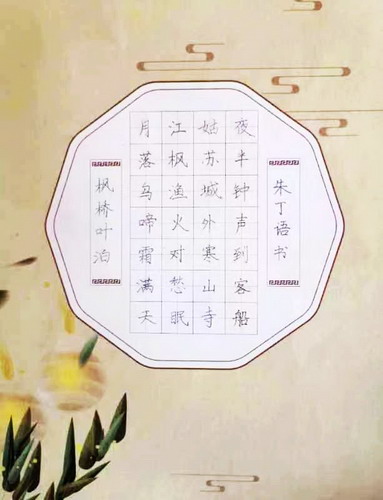 枫桥叶泊
月落鸟啼霜满天
江枫渔火对愁眠
姑苏城外寒山寺
夜半钟声到客船
朱丁语书